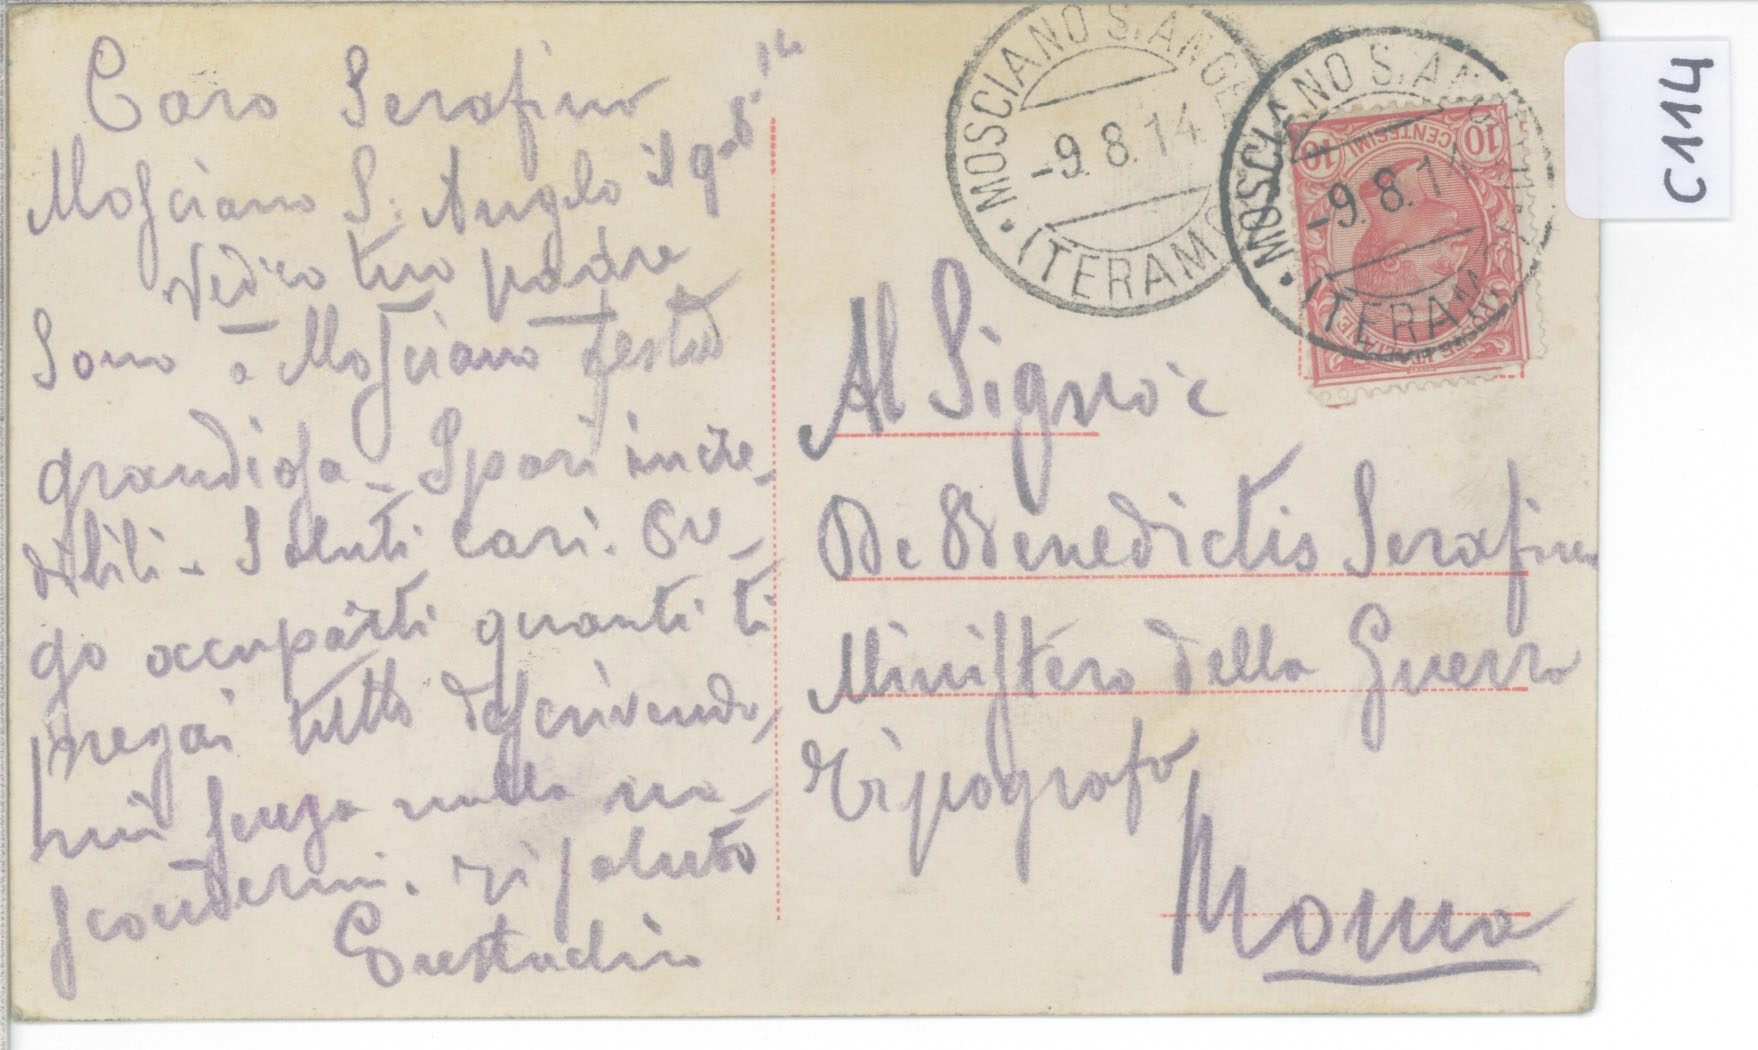 Caro Serafino
Mosciano S. Angelo il 9-8-14
Vedico tuo padre
Sono a Mosciano festa
grandiosa - Spari incre-
dibili - Saluti cari.
go occuparti quanti ti
pregai tutto descrivendo
mi senza nulla na-
scondermi. Ti saluto
MOSCIANO S. ANGE
-9.8.14
(TERAMO
MOSCIANO S. ANGE
-9.8.14
(TERAMO
10 CENTESIMI 10
Al Signor
De Benedictis Serafino
Ministero della Guerra
Tipografo
Roma
C114